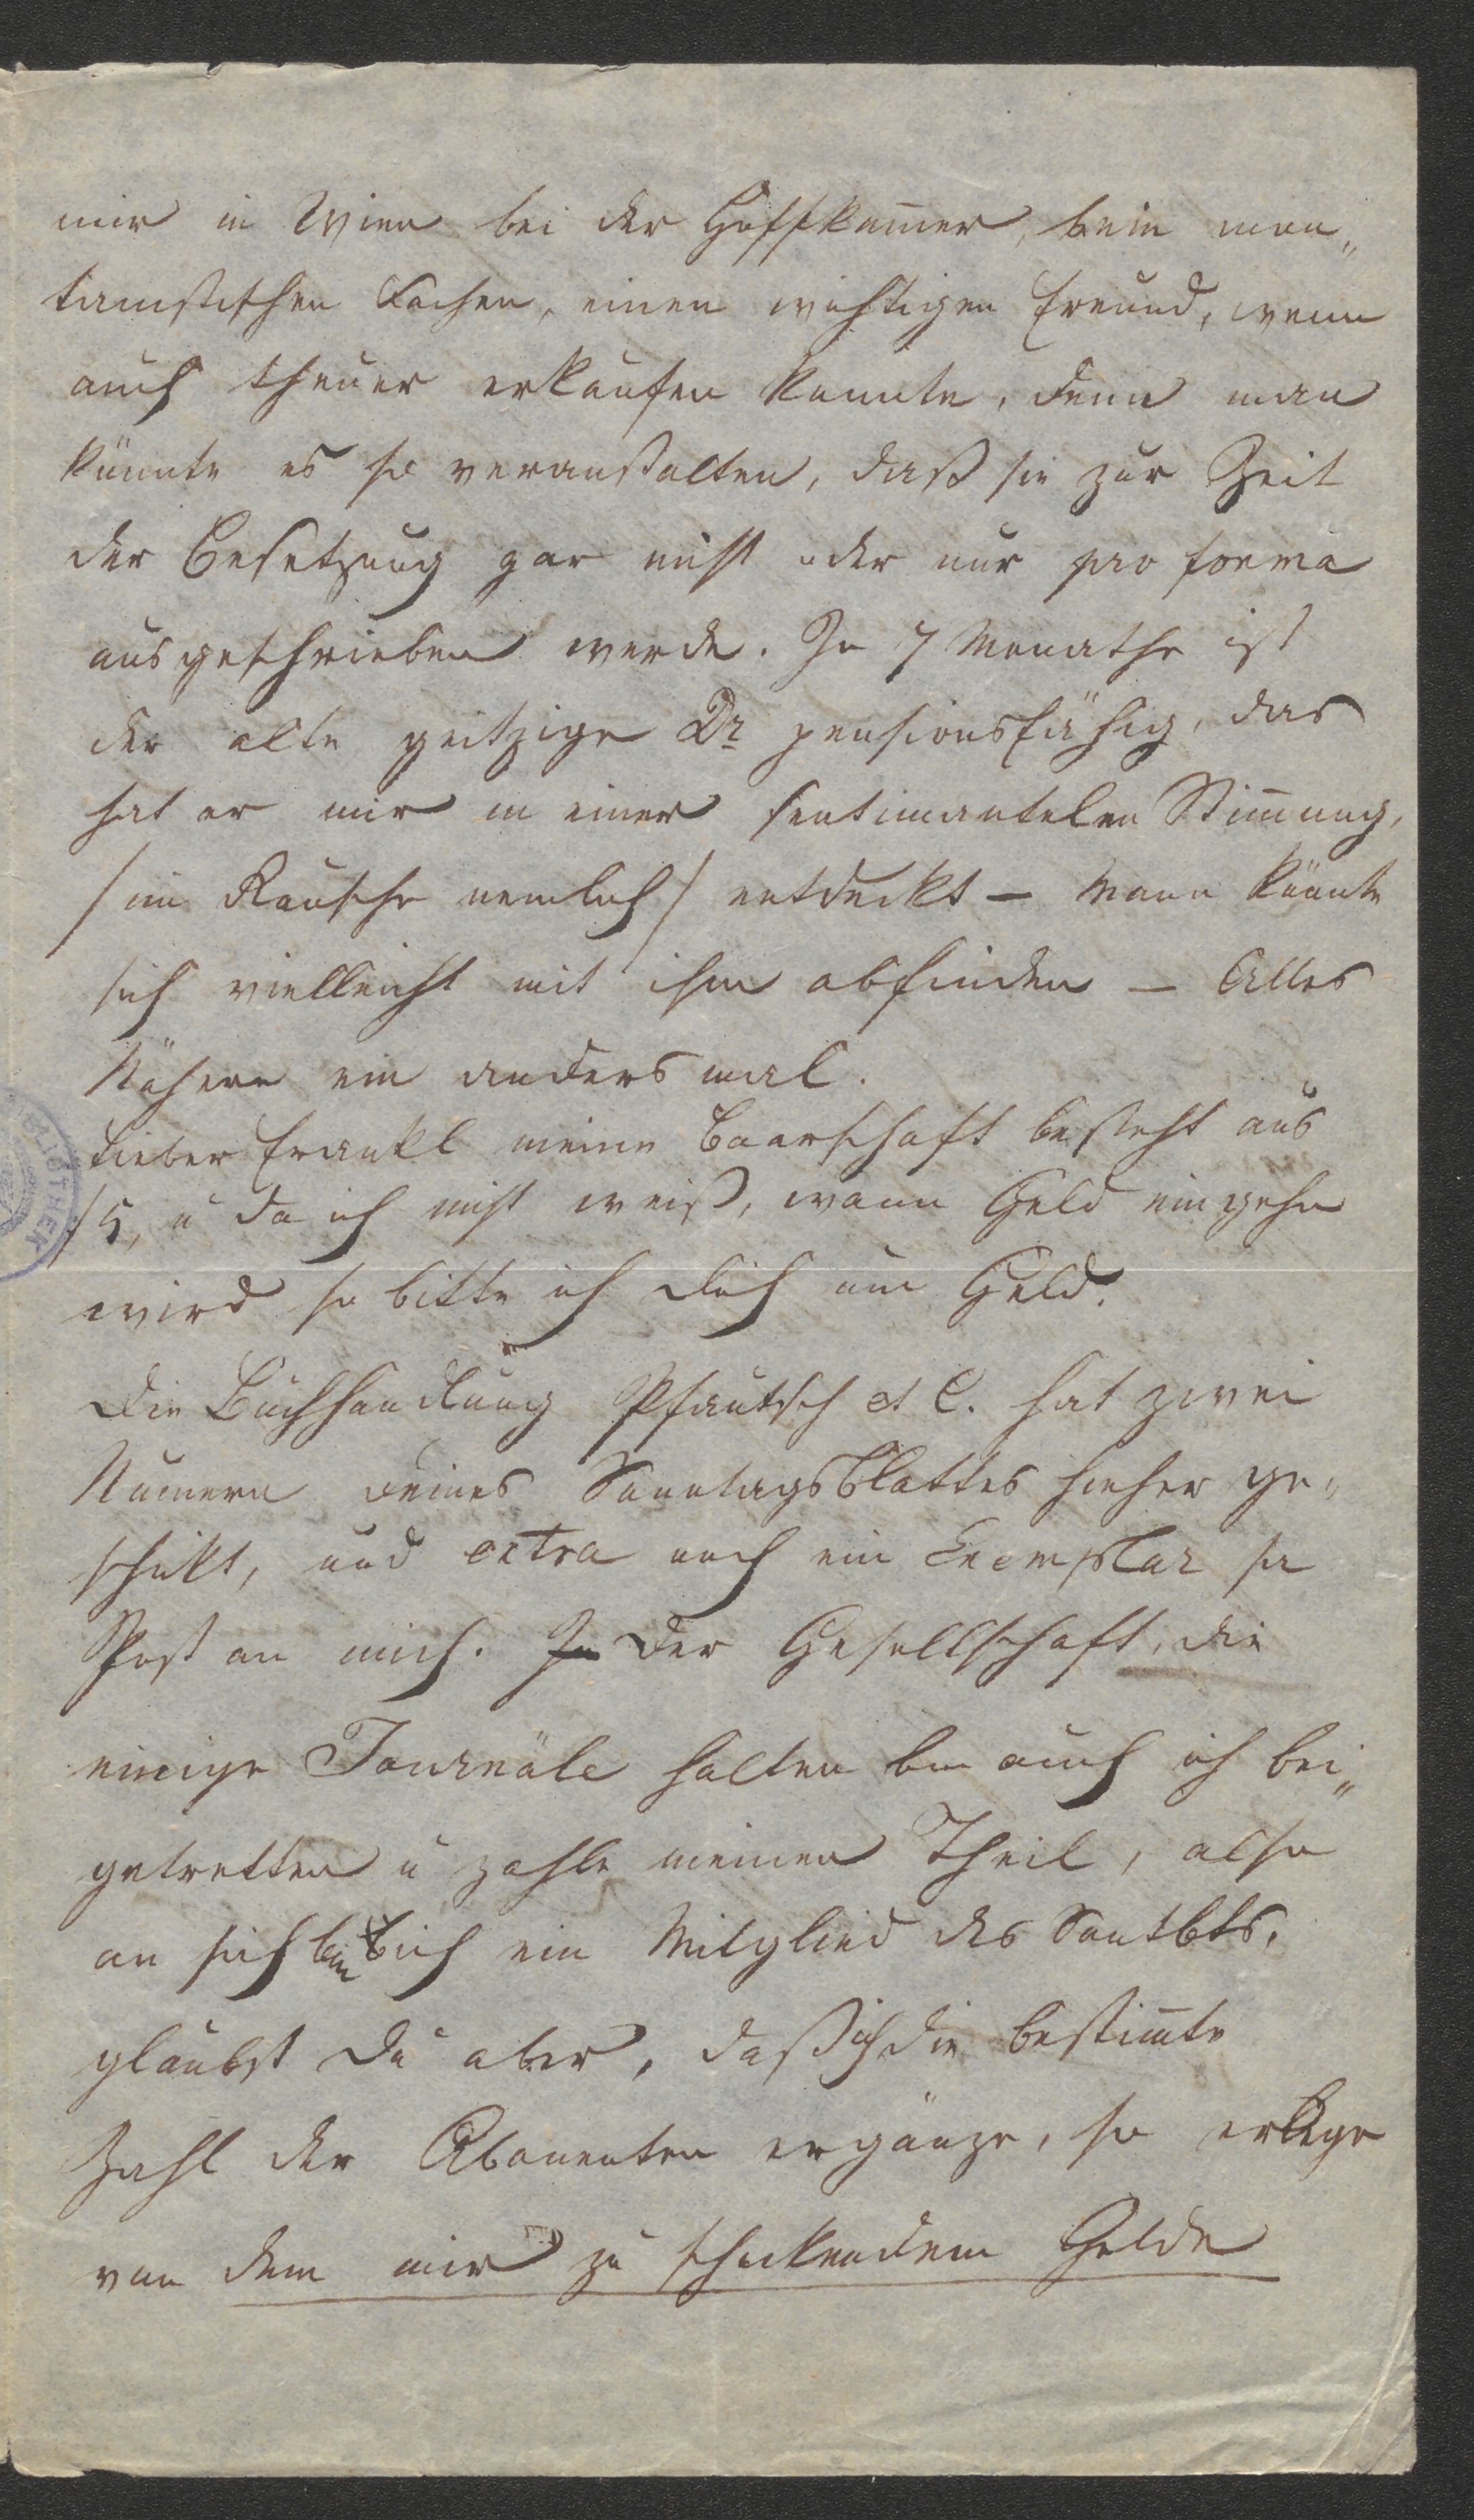 mir in Wien bei der Hofkam̅er, beim mon„
tanistischen Fache, einen wichtigen Freund, wenn
auch theuer erkaufen konnte, denn man
könnte es so veranstalten, daß sie zur Zeit
der Besetzung gar nicht oder nur pro forma
ausgeschrieben werde. In 7 Monathe ist
der alte geitzige Dr pensionsfähig, das
hat er mir in einer sentimantalen Stim̅ung,
/im Rausche nemlich/ entdeckt – Mann könnte
sich vielleicht mit ihm abfinden – Alles
Nähere ein anders mal.
Lieber Frankl meine Baarschaft besteht aus
f5, u da ich nicht weiß, wann Geld eingehn
wird so bitte ich dich um Geld.
Die Buchhandlung Pfautsch et C. hat zwei
Num̅ern deines Sonntagsblattes hieher ge„
schikt, und extra noch ein Exemplar pr
Post an mich. Der Gesellschaft, die
einige Journäle halten bin auch ich bei„
getretten u zahle meinen Theil, also
an sich bin ich ein Mitglied des Sontbts.
glaubst du aber, daß ich die bestim̅te
Zahl der Abonenten ergänze, so erlege
von dem mir zu schickendem Gelde
BIBLIOTHEK